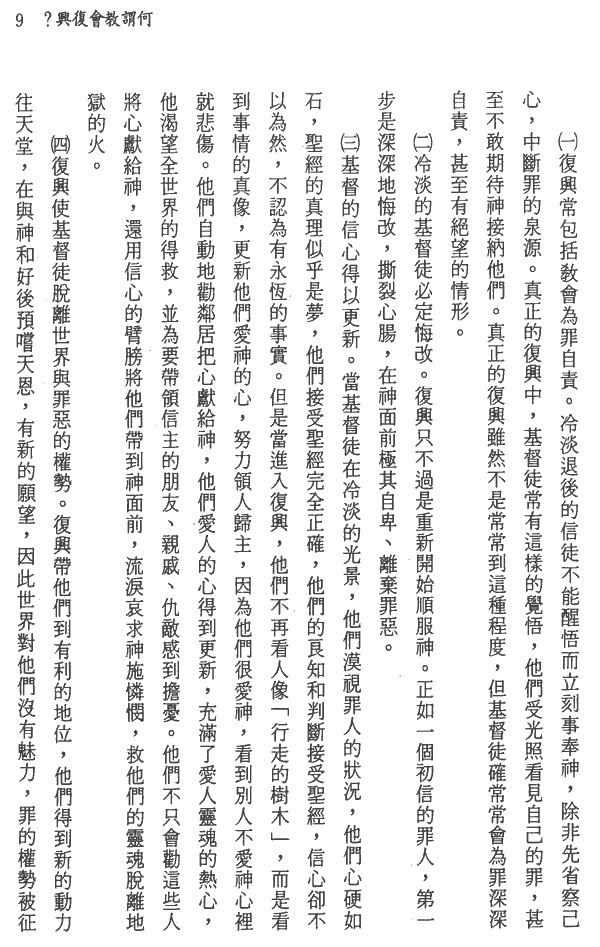 何謂教會復興？ 9
㈠復興常包括教會為罪自責。冷淡退後的信徒不能醒悟而立刻事奉神，除非先省察己
心，中斷罪的泉源。真正的復興中，基督徒常有這樣的覺悟，他們受光照看見自己的罪，甚
至不敢期待神接納他們。真正的復興雖然不是常常到這種程度，但基督徒確常常會為罪深深
自責，甚至有絕望的情形。
㈡冷淡的基督徒必定悔改。復興只不過是重新開始順服神。正如一個初信的罪人，第一
步是深深地悔改，撕裂心腸，在神面前極其自卑、離棄罪惡。
㈢基督的信心得以更新。當基督徒在冷淡的光景，他們漠視罪人的狀況，他們心硬如
石，聖經的真理似乎是夢，他們接受聖經完全正確，他們的良知和判斷接受聖經，信心卻不
以為然，不認為有永恆的事實。但是當進入復興，他們不再看人像「行走的樹木」，而是看
到事情的真像，更新他們愛神的心，努力領人歸主，因為他們很愛神，看到別人不愛神心裡
就悲傷。他們自動地勸鄰居把心獻給神，他們愛人的心得到更新，充滿了愛人靈魂的熱心，
他渴望全世界的得救，並為要帶領信主的朋友、親戚、仇敵感到擔憂。他們不只會勸這些人
將心獻給神，還用信心的臂膀將他們帶到神面前，流淚哀求神施憐憫，救他們的靈魂脫離地
獄的火。
㈣復興使基督徒脫離世界與罪惡的權勢。復興帶他們到有利的地位，他們得到新的動力
往天堂，在與神和好後預嚐天恩，有新的願望，因此世界對他們沒有魅力，罪的權勢被征